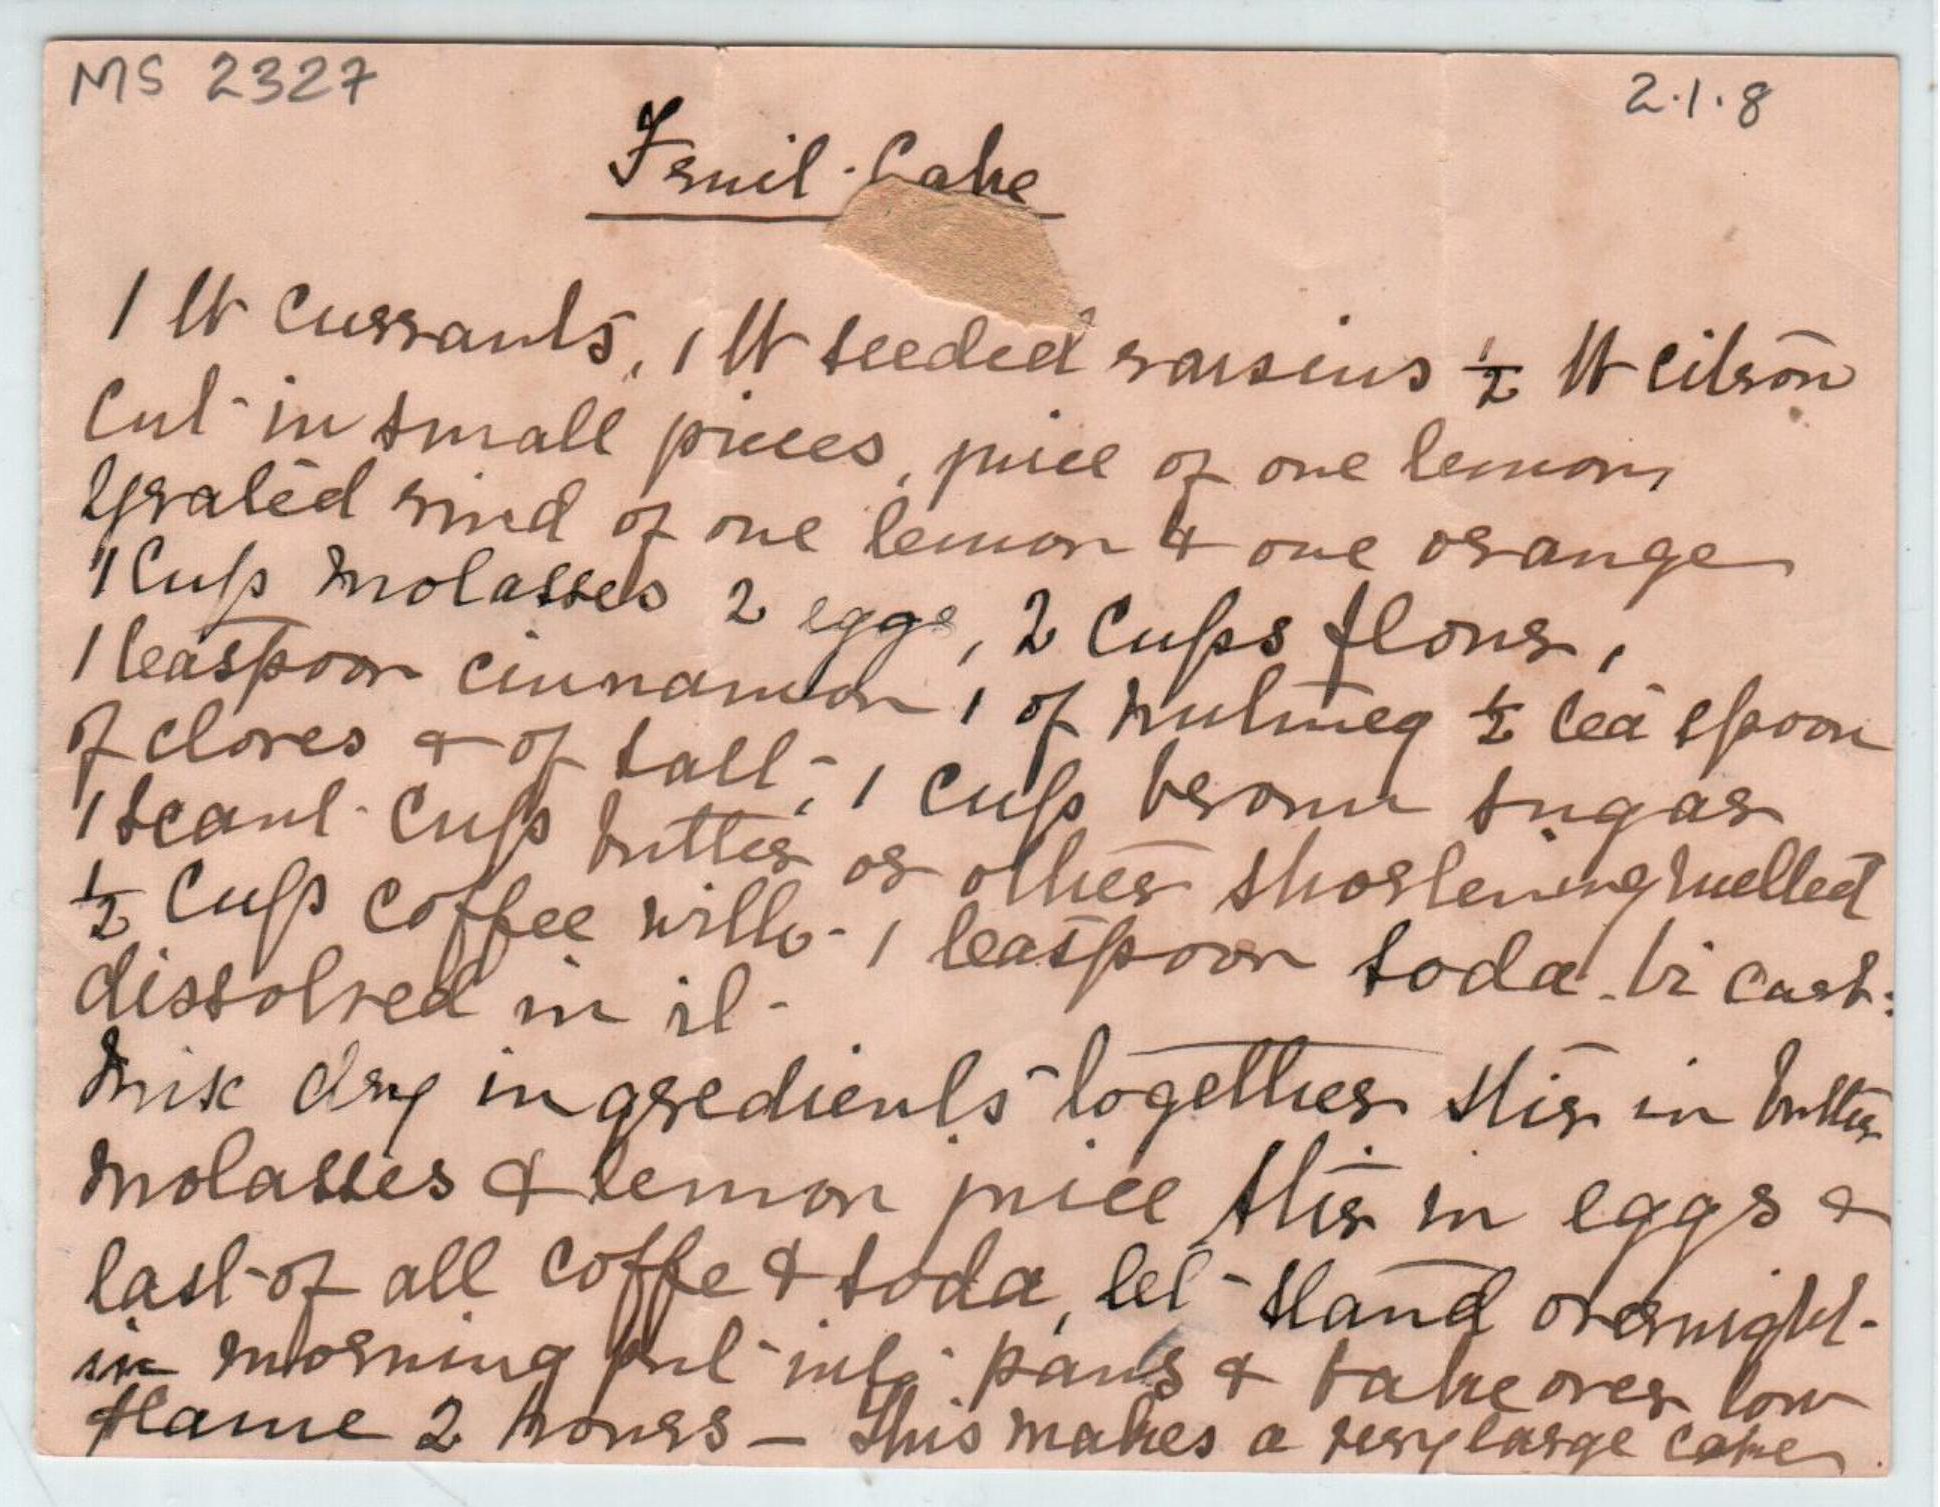 MS 2327
2.1.8
Fruit Cake
1 lb currants, 1 lb seeded raisins 1/2 lb citron
cut in small pieces, juice of one lemon,
grated rind of one lemon & one orange
1 Cup molasses 2 eggs, 2 Cups flour,
1 teaspoon cinnamon, 1 of nutmeg 1/2 tea spoon
of cloves & of salt, 1 cup brown sugar
1 scant cup butter or other shortening melted
1/2 Cup coffee with 1 teaspoon soda bi carb:
dissolved in it -
Mix dry ingredients together stir in butter
molasses & lemon juice stir in eggs &
last of all coffe & soda, let stand overnight -
in morning put into pans & bake over low
flame 2 hours — this makes a very large cake